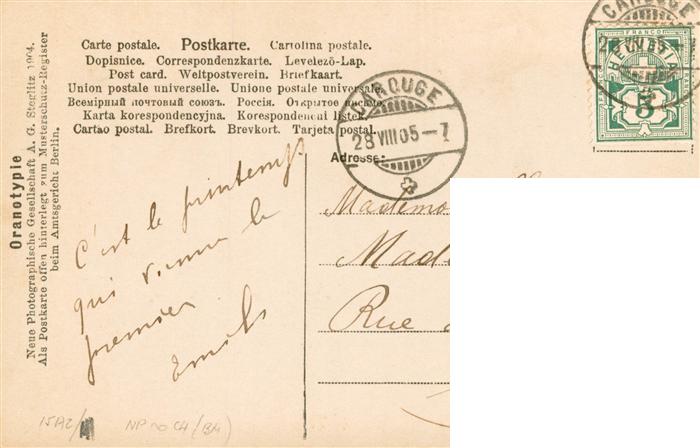 Carte postale. Postkarte. Cartolina postale.
Dopisnice. Correspondenzkarte. Levelező-Lap.
Post card. Weltpostverein. Briefkaart.
Union postale universelle. Unione postale universale.
Всемірный почтовый союзъ. Россія. Открытое письмо.
Karta korespondencyjna. Korespondenční lístek.
Cartão postal. Brefkort. Brevkort. Tarjeta postal.
Oranotypie
Neue Photographische Gesellschaft A. G. Steglitz 1904.
Als Postkarte offen hinterlegt zum Musterschutz-Register
beim Amtsgericht Berlin.
CAROUGE
28 VIII 05-7
CAROUGE
28 VIII 05
FRANCO
HELVETIA
5
Adresse:
C'est le printemps
qui vienne le
premier
Emile
Mademo
Mad
Rue
15A2/